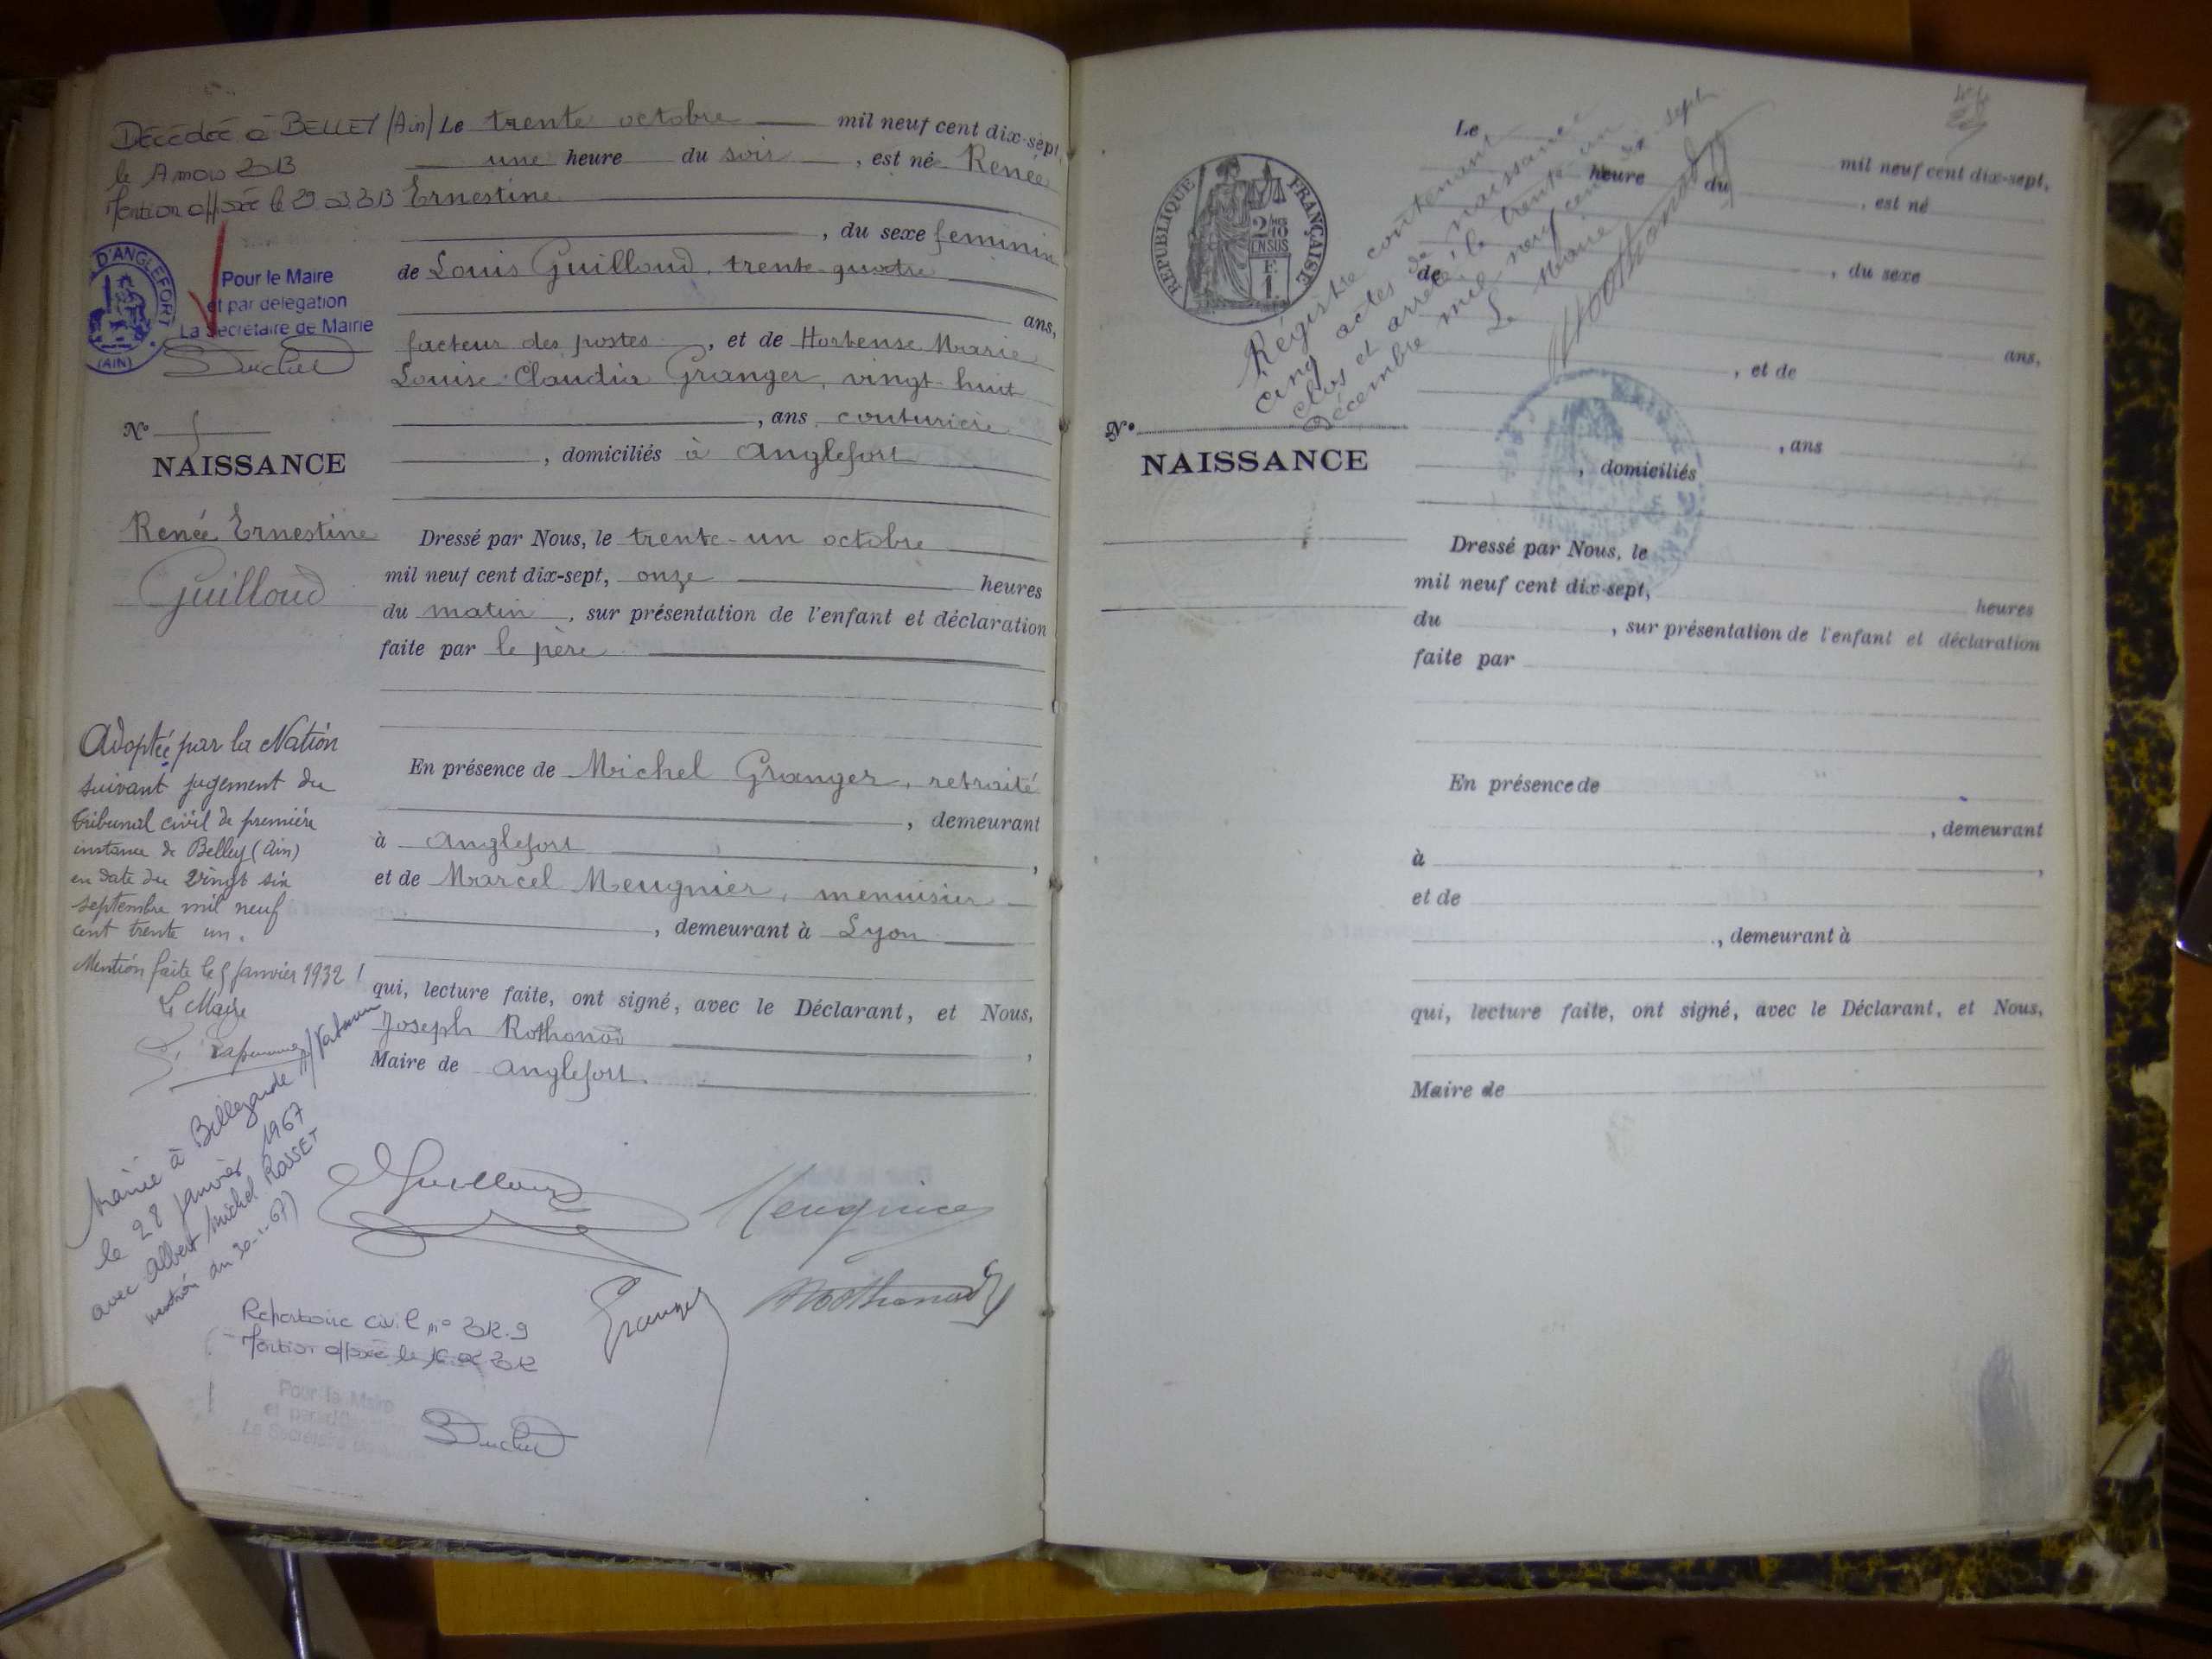 Décédée à BELLEY (Ain)
le
Mention apposée le 29.03.2013
D'ANGLEFORT
(AIN)
Pour le Maire
et par délégation
La Secrétaire de Mairie
Nº 5
NAISSANCE
Renée Ernestine
Guilloud
Adoptée par la Nation
suivant jugement du
tribunal civil de première
instance de Belley (Ain)
en date du vingt six
septembre mil neuf
cent trente un.
Mention faite le 5 Janvier 1932
Le Maire
Mariée à Bellegarde s/Valserine
le 28 janvier 1967
avec Albert Michel ROSSET
mention du 30-1-67)
Le trente octobre mil neuf cent dix-sept,
une heure du soir, est née Renée
Ernestine
, du sexe feminin
de Louis Guilloud, trente-quatre
ans,
facteur des postes, et de Hortense Marie
Louise Claudia Granger, vingt-huit
, ans, couturière
, domiciliés à Anglefort
Dressé par Nous, le trente-un octobre
mil neuf cent dix-sept, onze heures
du matin, sur présentation de l'enfant et déclaration
faite par le père
En présence de Michel Granger, retraité
, demeurant
à Anglefort,
et de Marcel Meugnier, menuisier
, demeurant à Lyon
qui, lecture faite, ont signé, avec le Déclarant, et Nous,
Joseph Rothonod,
Maire de Anglefort.
Guilloud
Meugnier
Granger
Rothonod
Répertoire civil nº 2012-9
Mention apposée le 2012
Pour le Maire
et par délégation
La Secrétaire de Mairie
REPUBLIQUE FRANÇAISE
2/10
EN SUS
F.
1.
Registre contenant
cinq actes de naissance
clos et arrêté le trente-un
décembre mil neuf cent dix-sept
Le Maire
Rothonod
Nº
NAISSANCE
Le
mil neuf cent dix-sept,
heure du, est né
, du sexe
de
ans,
, et de
, ans
, domiciliés
Dressé par Nous, le
mil neuf cent dix-sept, heures
du, sur présentation de l'enfant et déclaration
faite par
En présence de
, demeurant
à,
et de
, demeurant à
qui, lecture faite, ont signé, avec le Déclarant, et Nous,
Maire de